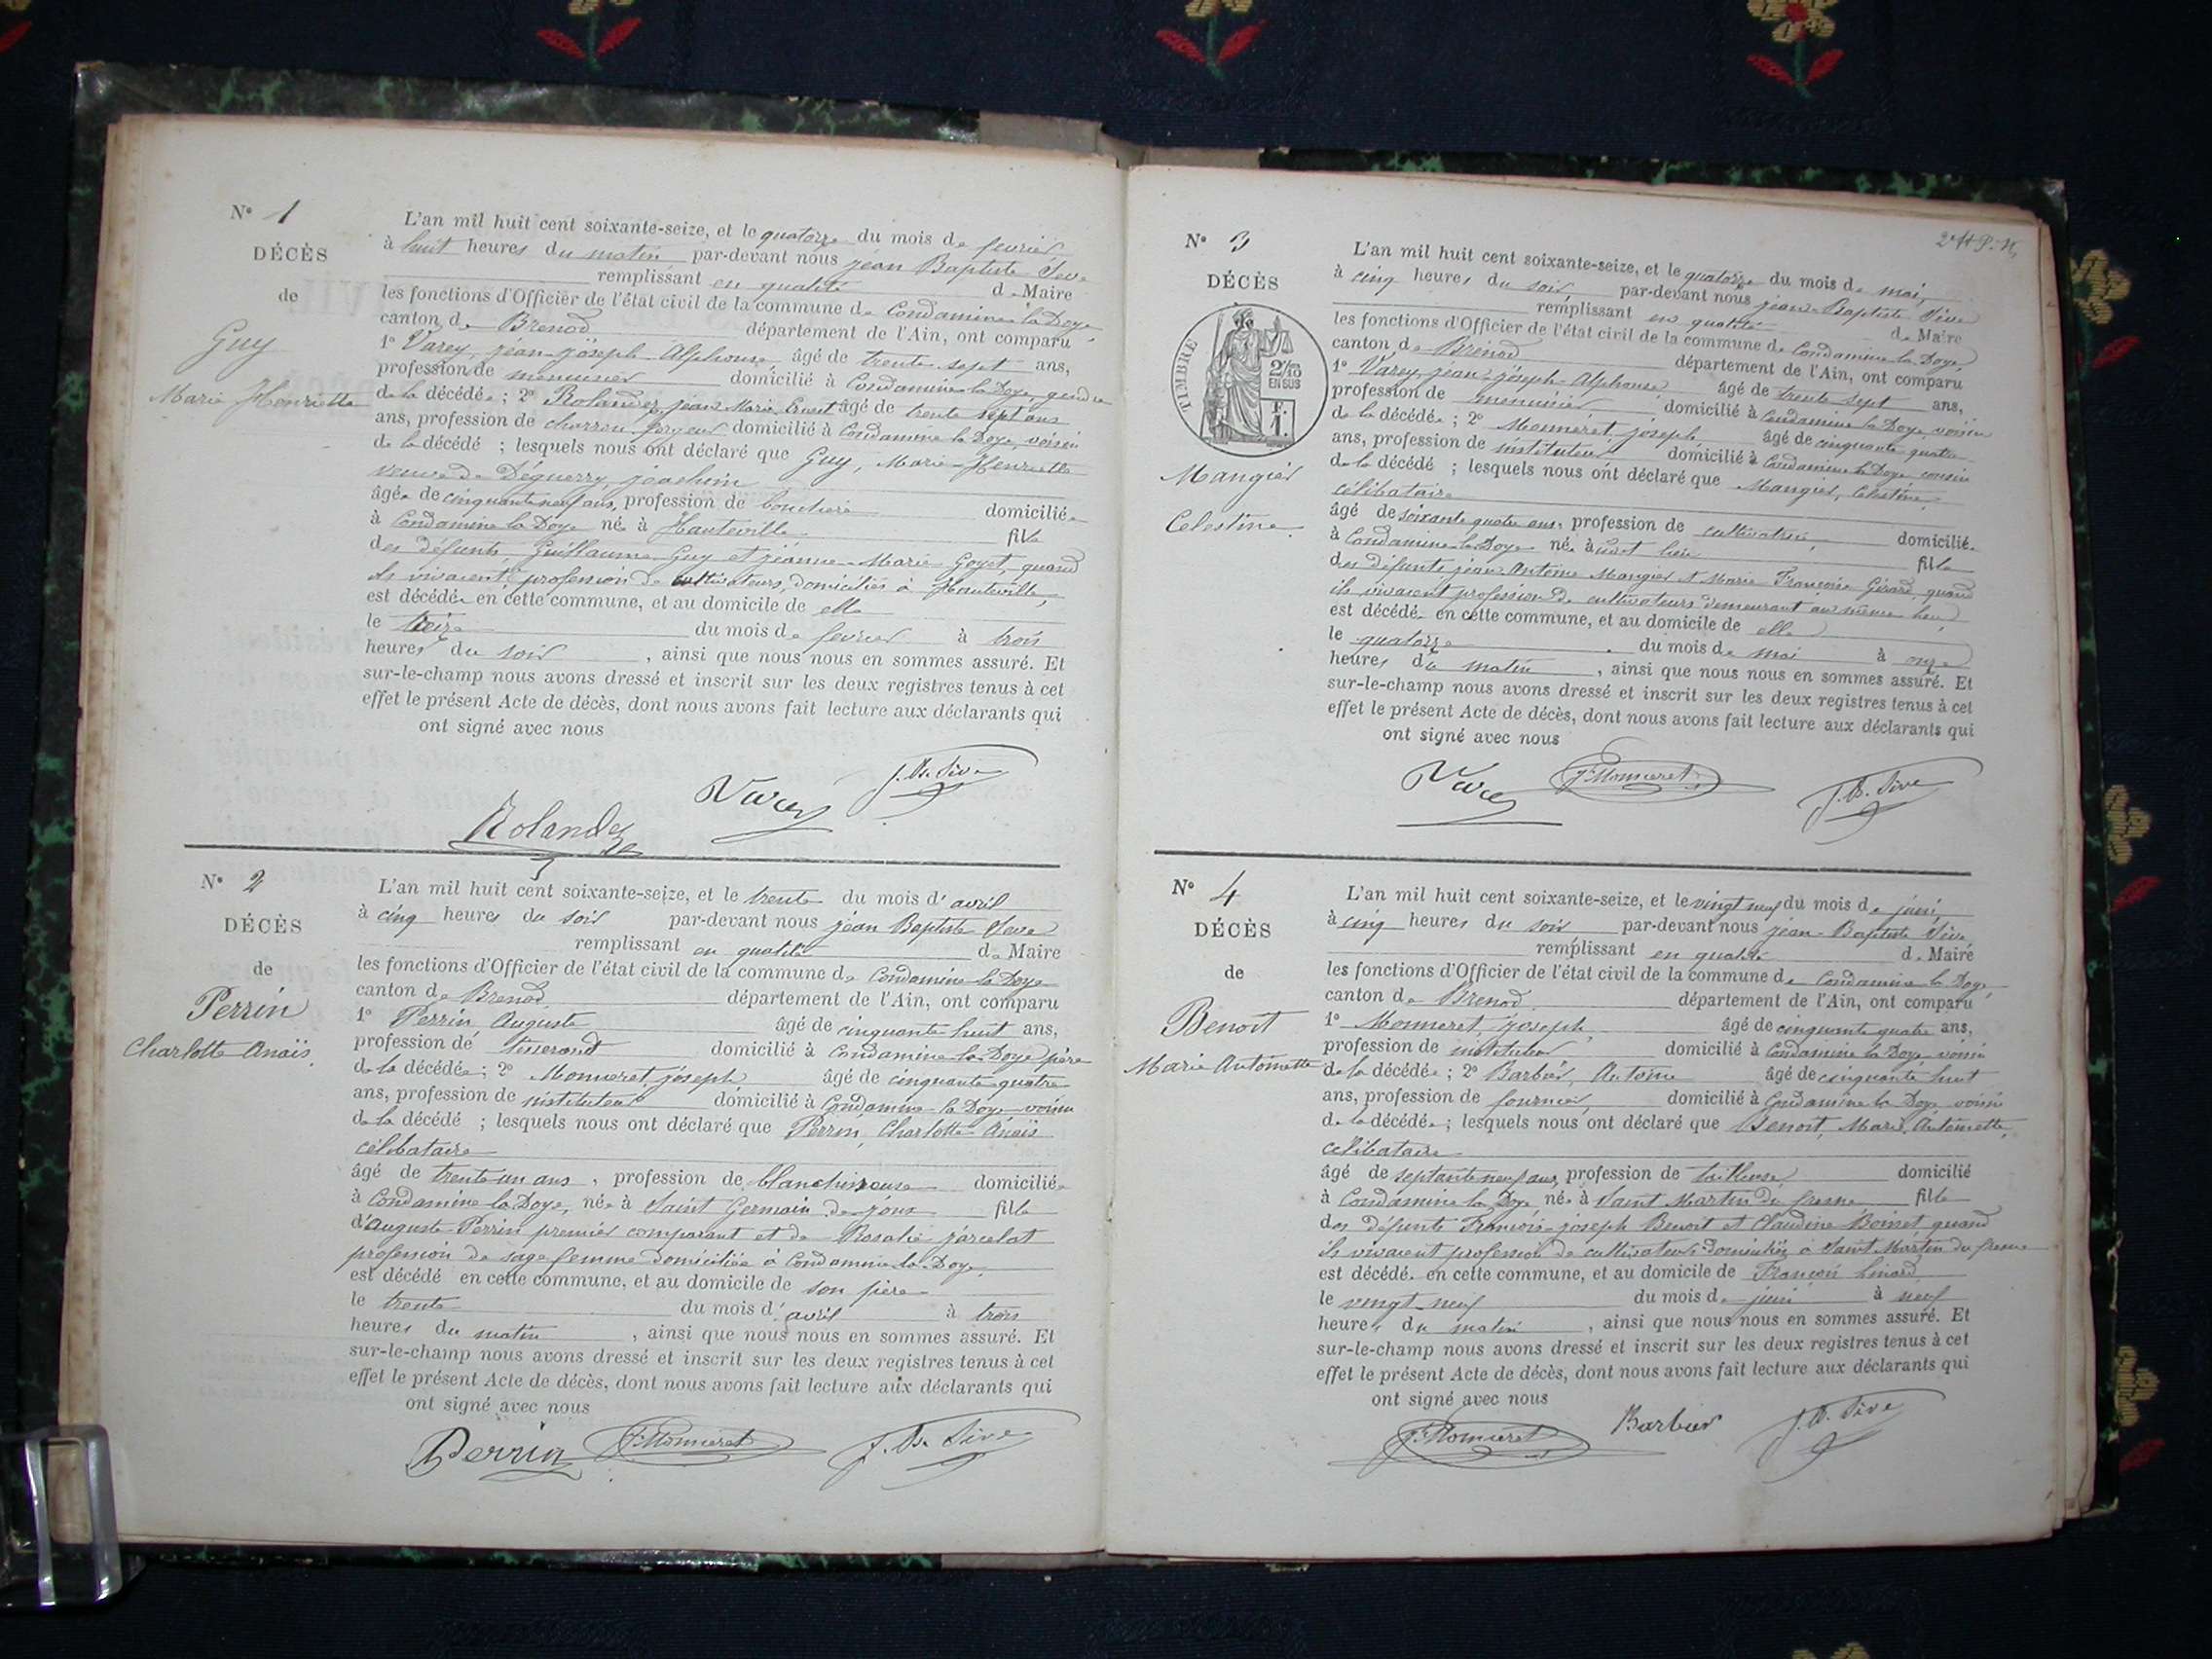 N° 1
DÉCÈS
de
Guy
Marie Henriette
L'an mil huit cent soixante-seize, et le quatorze du mois de fevrier
à huit heures du matin par-devant nous jean Baptiste Seve
remplissant en qualité de Maire
les fonctions d'Officier de l'état civil de la commune de Condamine la Doye
canton de Brenod département de l'Ain, ont comparu
1° Varey, jean-joseph-Alphonse, âgé de trente-sept ans,
profession de menuisier domicilié à Condamine la Doye, gendre
de la décédée ; 2° Rolandez, jean Marie Ernest âgé de trente sept ans
ans, profession de charron forgeur domicilié à Condamine la Doye, voisin
de la décédé ; lesquels nous ont déclaré que Guy, Marie-Henriette
veuve de Déguerry, joachim
âgée de cinquante neuf ans, profession de bouchère domiciliée
à Condamine la Doye née à Hauteville fille
des défunts Guillaume Guy et jeanne-Marie Goyet, quand
ils vivaient profession de cultivateurs, domiciliés à Hauteville,
est décédée en cette commune, et au domicile de elle
le treize du mois de fevrier à trois
heures du soir , ainsi que nous nous en sommes assuré. Et
sur-le-champ nous avons dressé et inscrit sur les deux registres tenus à cet
effet le présent Acte de décès, dont nous avons fait lecture aux déclarants qui
ont signé avec nous
Rolandez Varey J. B. Sève
N° 2
DÉCÈS
de
Perrin
Charlotte Anaïs
L'an mil huit cent soixante-seize, et le trente du mois d'avril
à cinq heures du soir par-devant nous jean Baptiste Seve
remplissant en qualité de Maire
les fonctions d'Officier de l'état civil de la commune de Condamine la Doye
canton de Brenod département de l'Ain, ont comparu
1° Perrin, Auguste âgé de cinquante huit ans,
profession de tisserand domicilié à Condamine la Doye père
de la décédée ; 2° Monneret, joseph âgé de cinquante quatre
ans, profession de instituteur domicilié à Condamine la Doye voisin
de la décédé ; lesquels nous ont déclaré que Perrin, Charlotte Anaïs
célibataire
âgé de trente un ans , profession de blanchisseuse domiciliée
à Condamine la Doye, née à Saint Germain de joux fille
d'Auguste Perrin premier comparant et de Rosalie jarcelat
profession de sage femme domiciliée à Condamine la Doye
est décédé en cette commune, et au domicile de son père
le trente du mois d'avril à trois
heures du matin , ainsi que nous nous en sommes assuré. Et
sur-le-champ nous avons dressé et inscrit sur les deux registres tenus à cet
effet le présent Acte de décès, dont nous avons fait lecture aux déclarants qui
ont signé avec nous
Perrin J. Monneret J. B. Sève
N° 3
DÉCÈS
TIMBRE
2/10
EN SUS
F.
1.
Mangier
Celestine
L'an mil huit cent soixante-seize, et le quatorze du mois de mai,
à cinq heures du soir par-devant nous jean-Baptiste Sève
remplissant en qualité de Maire
les fonctions d'Officier de l'état civil de la commune de Condamine la Doye,
canton de Brénod département de l'Ain, ont comparu
1° Varey, jean-joseph-Alphonse, âgé de trente sept ans,
profession de menuisier domicilié à Condamine la Doye voisin
de la décédée ; 2° Monneret, joseph âgé de cinquante quatre
ans, profession de instituteur domicilié à Condamine la Doye cousin
de la décédé ; lesquels nous ont déclaré que Mangier, Célestine
célibataire
âgé de soixante quatre ans, profession de cultivatrice domiciliée
à Condamine la Doye née à udit lieu fille
des défunts jean Antoine Mangier et Marie Françoise Girard, quand
ils vivaient profession de cultivateurs demeurant au même lieu,
est décédée en cette commune, et au domicile de elle
le quatorze du mois de mai à onze
heures du matin , ainsi que nous nous en sommes assuré. Et
sur-le-champ nous avons dressé et inscrit sur les deux registres tenus à cet
effet le présent Acte de décès, dont nous avons fait lecture aux déclarants qui
ont signé avec nous
Varey J. Monneret J. B. Sève
N° 4
DÉCÈS
de
Benoit
Marie Antoinette
L'an mil huit cent soixante-seize, et le vingt neuf du mois de juin,
à cinq heures du soir par-devant nous jean-Baptiste Sève
remplissant en qualité de Maire
les fonctions d'Officier de l'état civil de la commune de Condamine la Doye,
canton de Brenod département de l'Ain, ont comparu
1° Monneret, joseph, âgé de cinquante quatre ans,
profession de instituteur domicilié à Condamine la Doye voisin
de la décédée ; 2° Barbier, Antoine âgé de cinquante huit
ans, profession de fournier, domicilié à Condamine la Doye voisin
de la décédée ; lesquels nous ont déclaré que Benoit, Marie Antoinette,
célibataire
âgé de septante neuf ans, profession de tailleuse domicilié
à Condamine la Doye née à Saint Martin du fresne fille
des défunts François-joseph Benoit et Claudine Boisset quand
ils vivaient profession de cultivateurs domiciliés à Saint Martin du fresne
est décédée en cette commune, et au domicile de François
le vingt-neuf du mois de juin à neuf
heures du matin , ainsi que nous nous en sommes assuré. Et
sur-le-champ nous avons dressé et inscrit sur les deux registres tenus à cet
effet le présent Acte de décès, dont nous avons fait lecture aux déclarants qui
ont signé avec nous
J. Monneret Barbier J. B. Sève